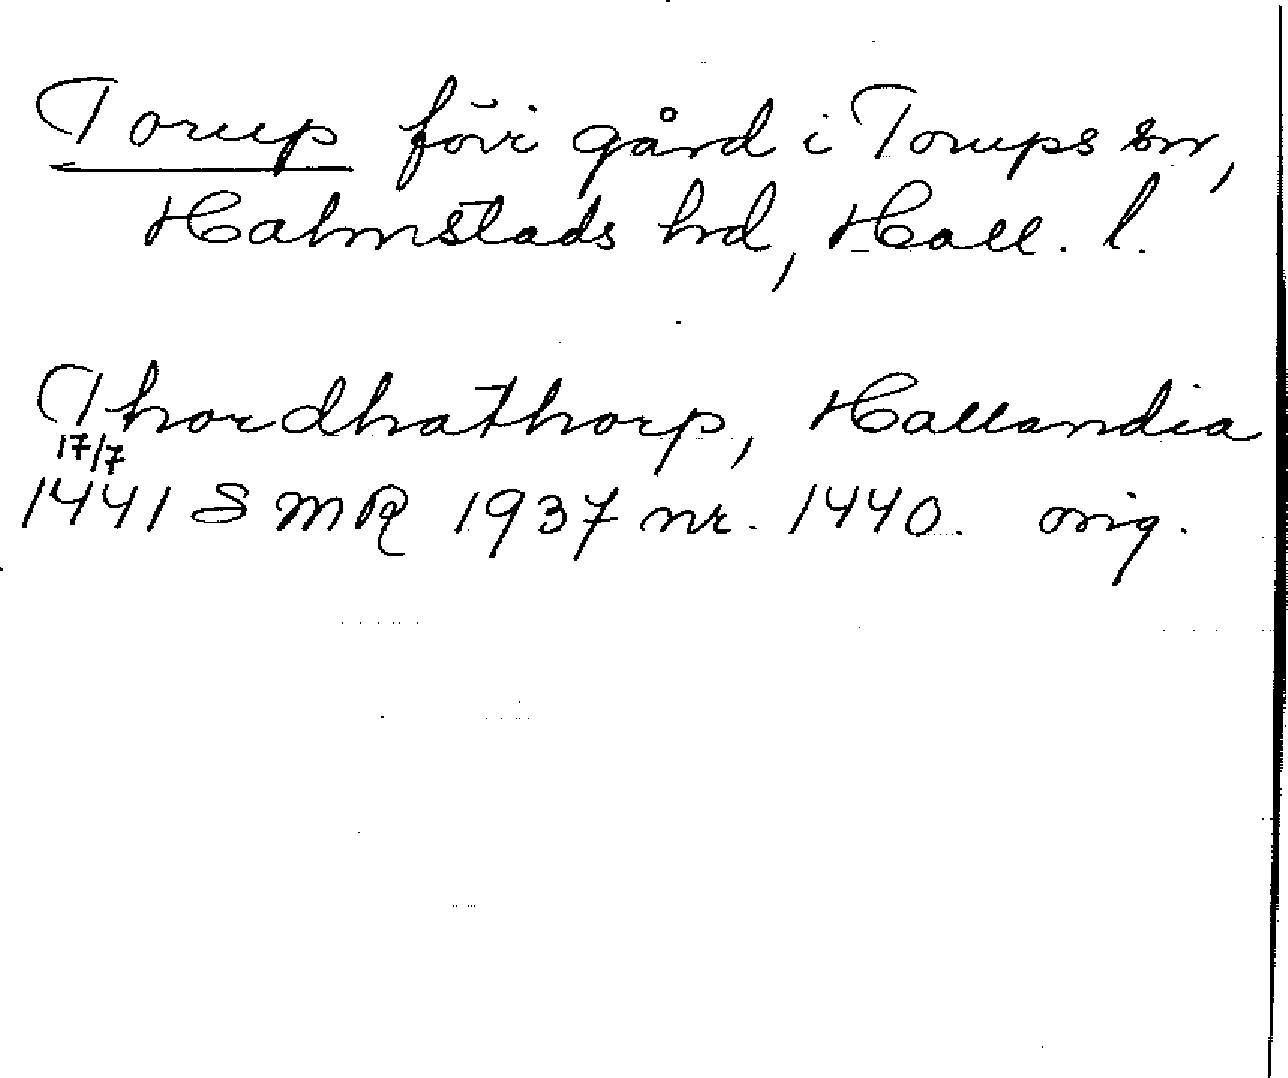 Torup förr gård i Torups sn,
Halmstads hd, Hall. l.
Thordhathorp, Hallandia
17/7
1441 SMR 1937 nr. 1440. orig.